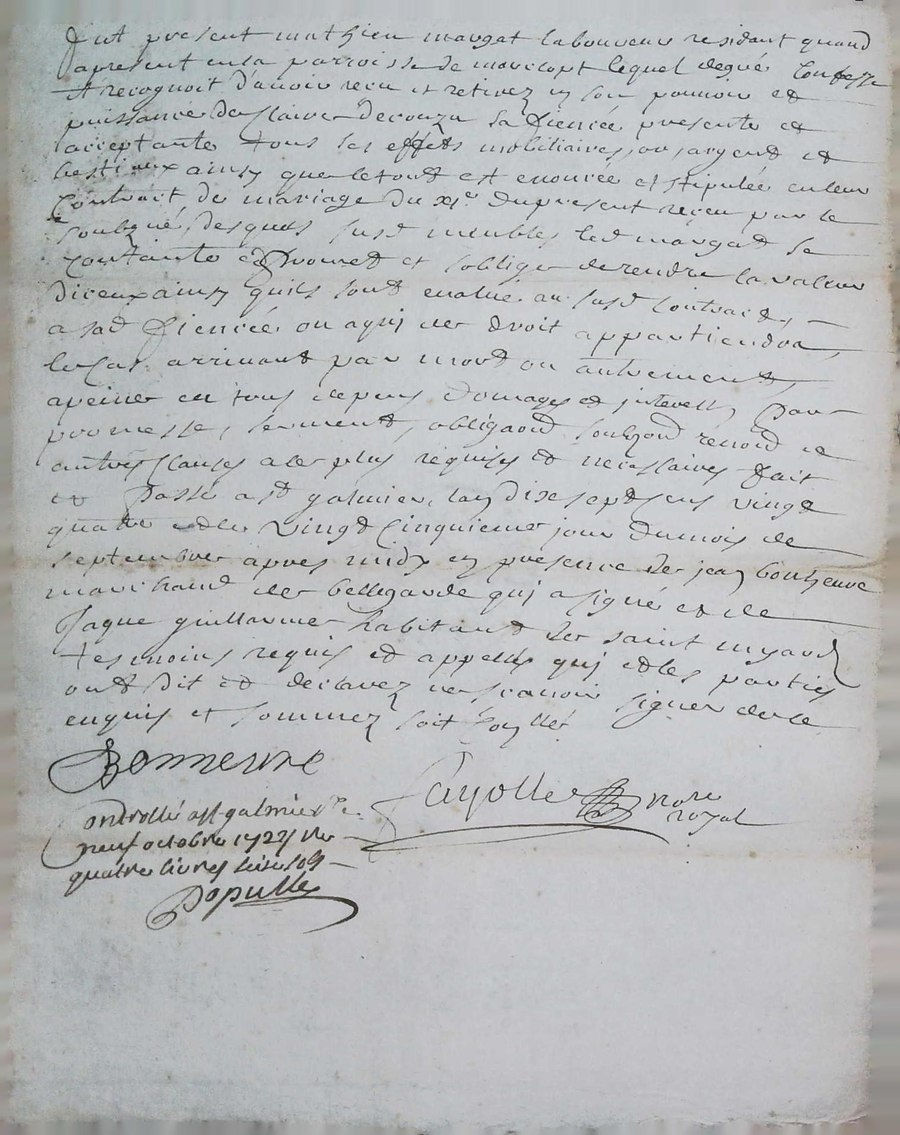 fut present mathieu margat laboureur residant quand
apresent en la parroisse de marcopt lequel degré confesse
et recognoit d'avoir receu et retirez en son pouvoir et
puissance de Claire Decouzu sa fiencée presente et
acceptante tous les effets mobiliaires, or, argent et
bestiaux ainsy que le tout est enoncée et stipulée en leur
Contrait de mariage du xje. du present reçeu par le
soubgné, desquels susd meubles led margad se
contante et promet et s'oblige de rendre la valleur
diceux ainsy quils sont evalué au susd contract, —
a sad fiencée ou a qui de droit appartiendra,
le cas arrivant par mort ou autrement,
a peine en tous depens domages et interests par
promesse, serment, obligaond soubzond renond et
autres clauses a le plus requises et necessaires fait
et passé a st galmier, lan dix sept cens vingt
quatre et le vingt cinquieme jour du mois de
septembre apres midy en presence de jean bonneuve
marchand de bellegarde qui a signé et de
Jaque guillaume habitant de saint myard
tesmoins requis et appellés qui et les parties
ont dit et declarez ne scavoir signer de ce
enquis et sommez soit coullé
Bonnerive
Fayolle nore
royal
ontrollé a st galmier le
neuf octobre 1724 r
quatre livres seize sols
Populle